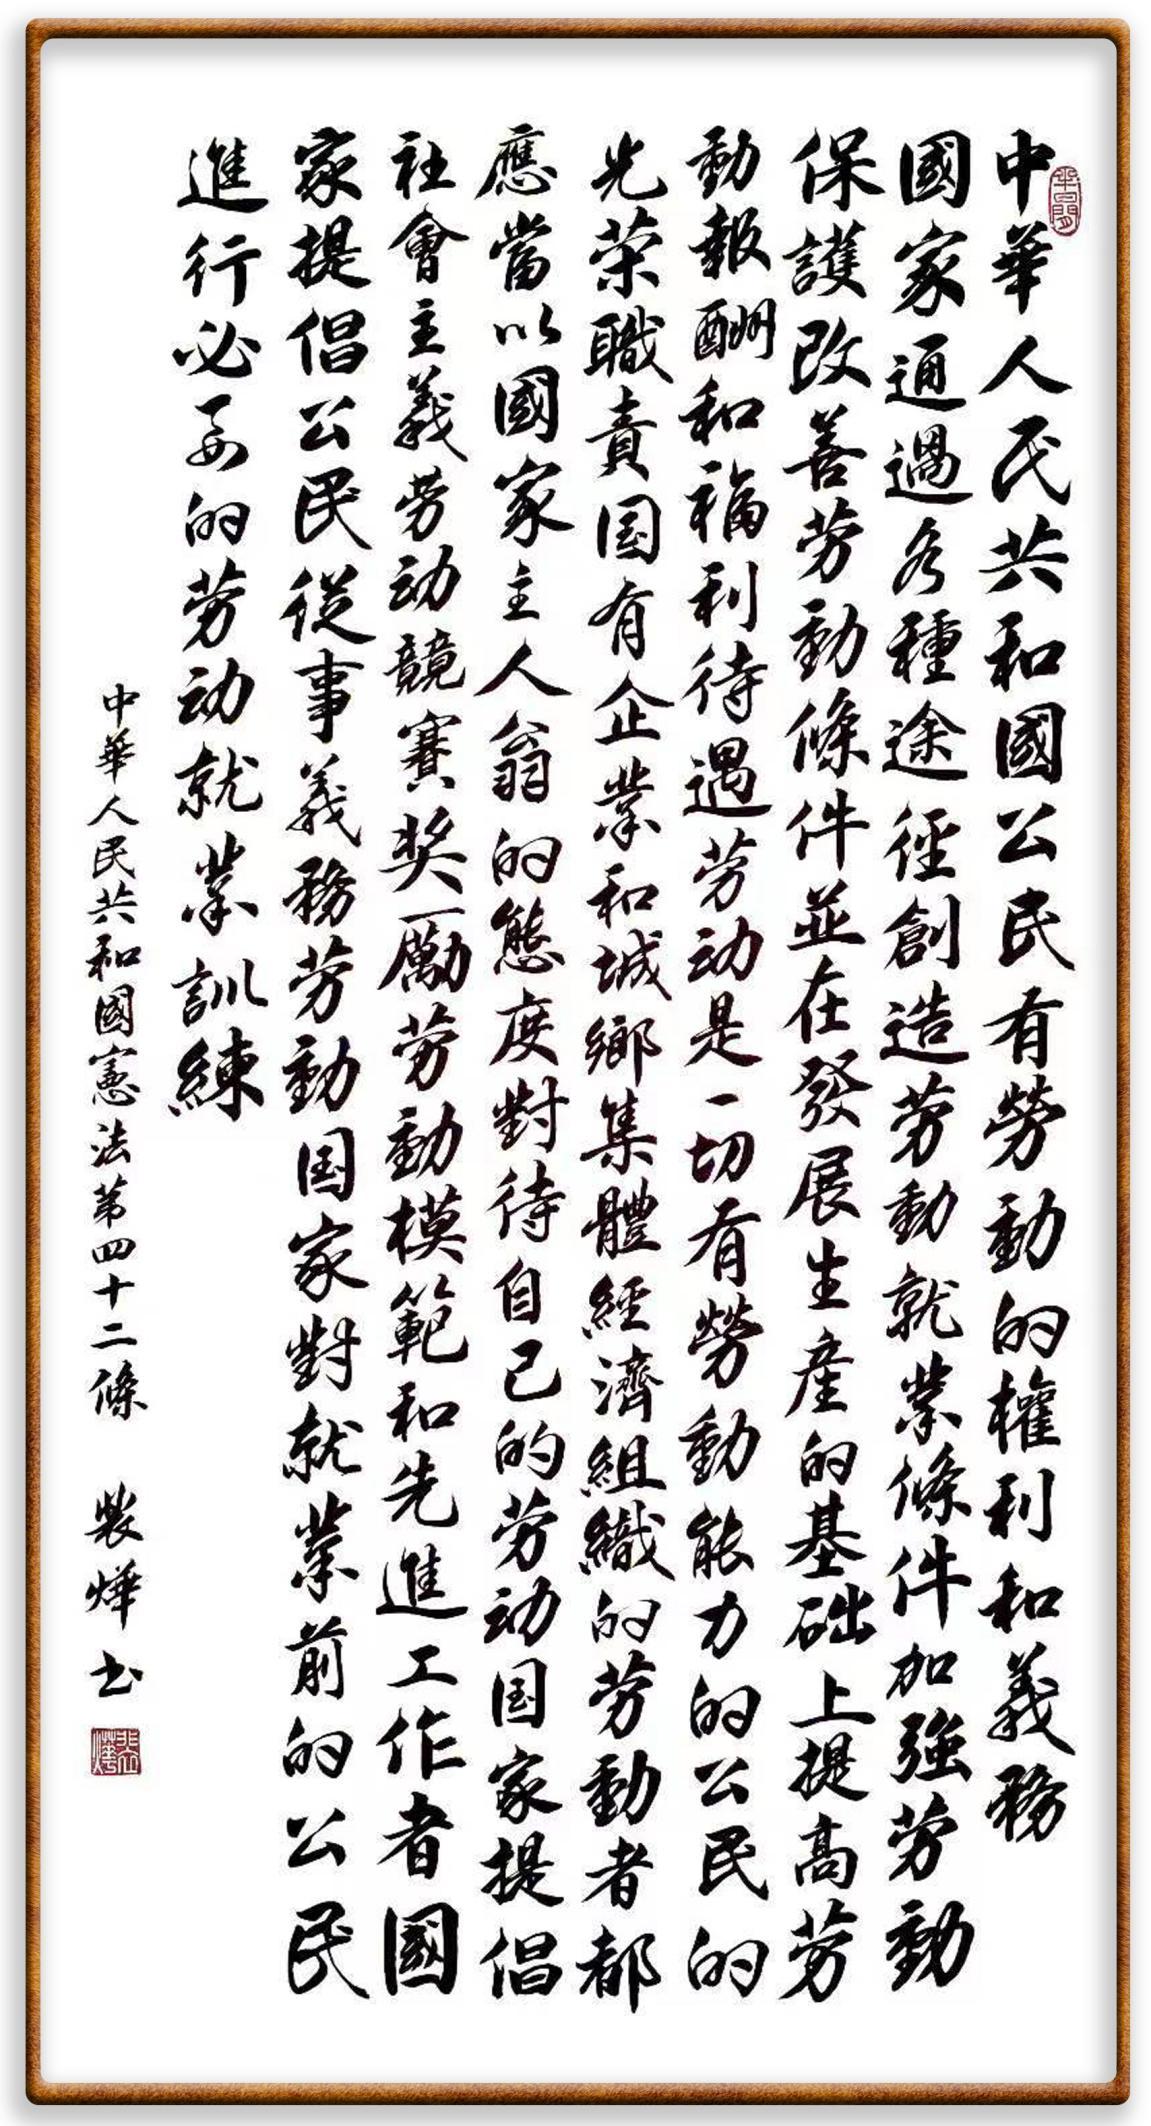 中華人民共和國公民有勞動的權利和義務
國家通過各種途徑創造劳動就業條件加強劳動
保護改善劳動條件並在發展生產的基础上提高劳
動報酬和福利待遇劳动是一切有勞動能力的公民的
光荣職責国有企業和城鄉集體經濟組織的劳動者都
應當以國家主人翁的態度對待自己的劳动国家提倡
社會主義劳动競賽奖励劳動模範和先進工作者國
家提倡公民從事義務劳動国家對就業前的公民
進行必要的劳动就業訓練
中華人民共和國憲法第四十二條 裴燁书
裴燁